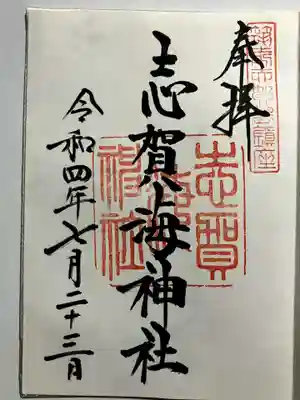 奉拝
志賀海神社
令和四年七月二十三日
志賀海神社